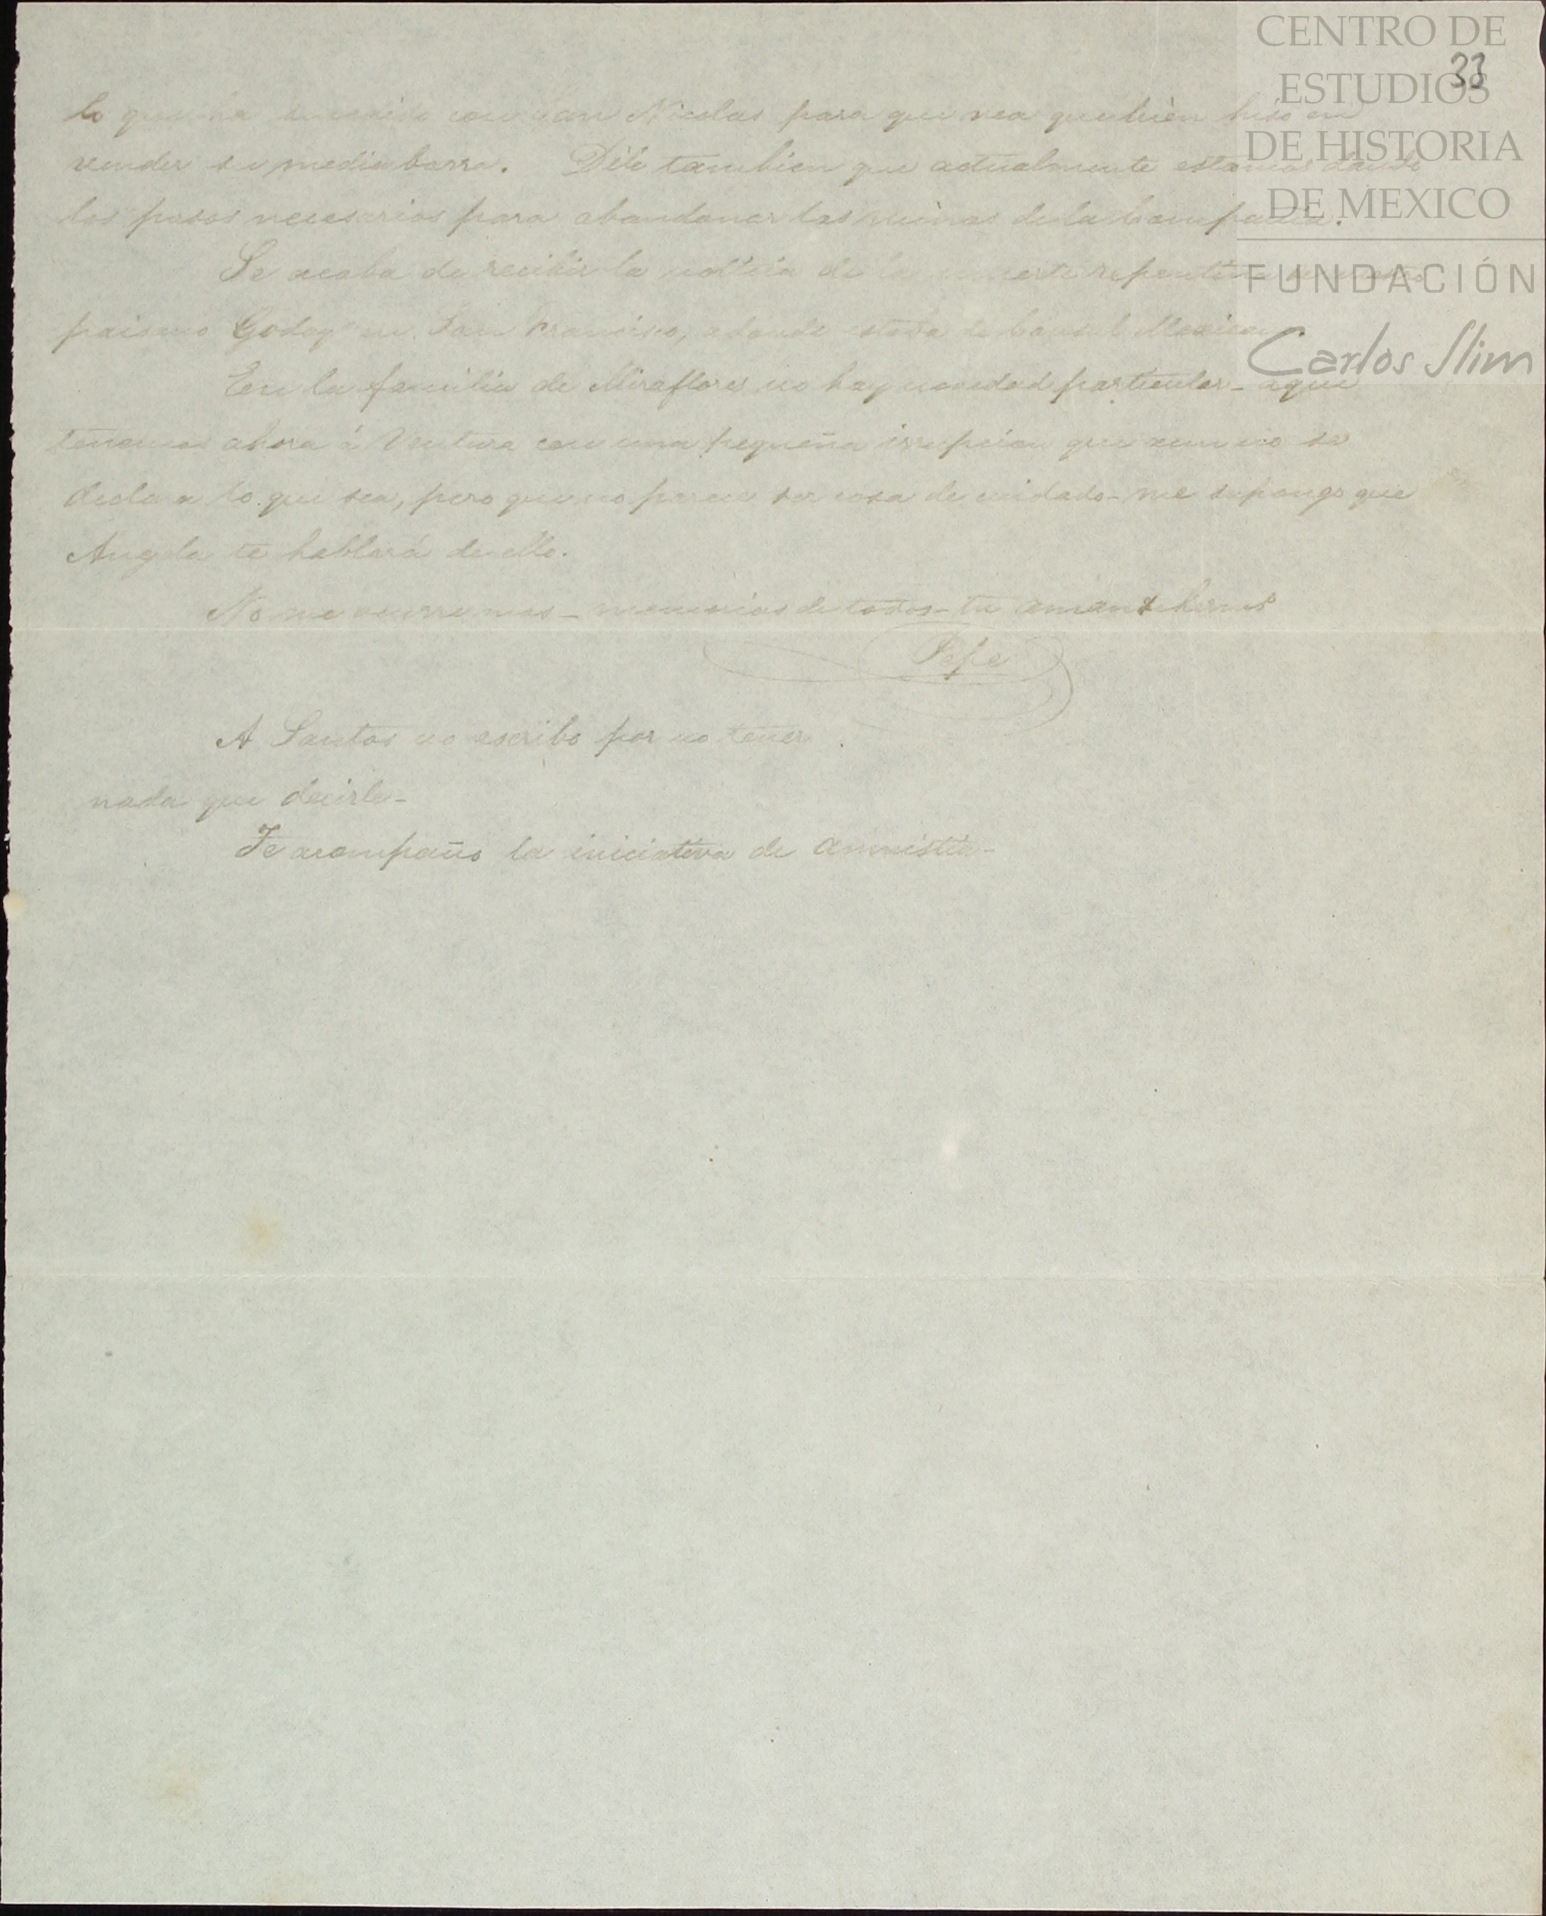 CENTRO DE
ESTUDIOS
DE HISTORIA
DE MEXICO
FUNDACIÓN
Carlos Slim
33
lo que ha sucedido con San Nicolas para que vea que bien hiso en
vender su media barra. Díle tambien que actualmente estamos dando
los pasos necesarios para abandonar las minas de la Compañia.
Se acaba de recibir la noticia de la muerte repentina de nuestro
paisano Godoy en San Francisco, adonde estaba de Consul Mexicano.
En la familia de Miraflores no hay novedad particular_ aqui
tenemos ahora á Ventura con una pequeña irrupcion que aun no se
declara lo que sea, pero que no parece ser cosa de cuidado_ me supongo que
Angela te hablará de ello.
No me ocurre mas_ memorias de todos_ tu amante herm.º
Pepe
A Santos no escribo por no tener
nada que decirle_
Te acompaño la iniciativa de amnistia_